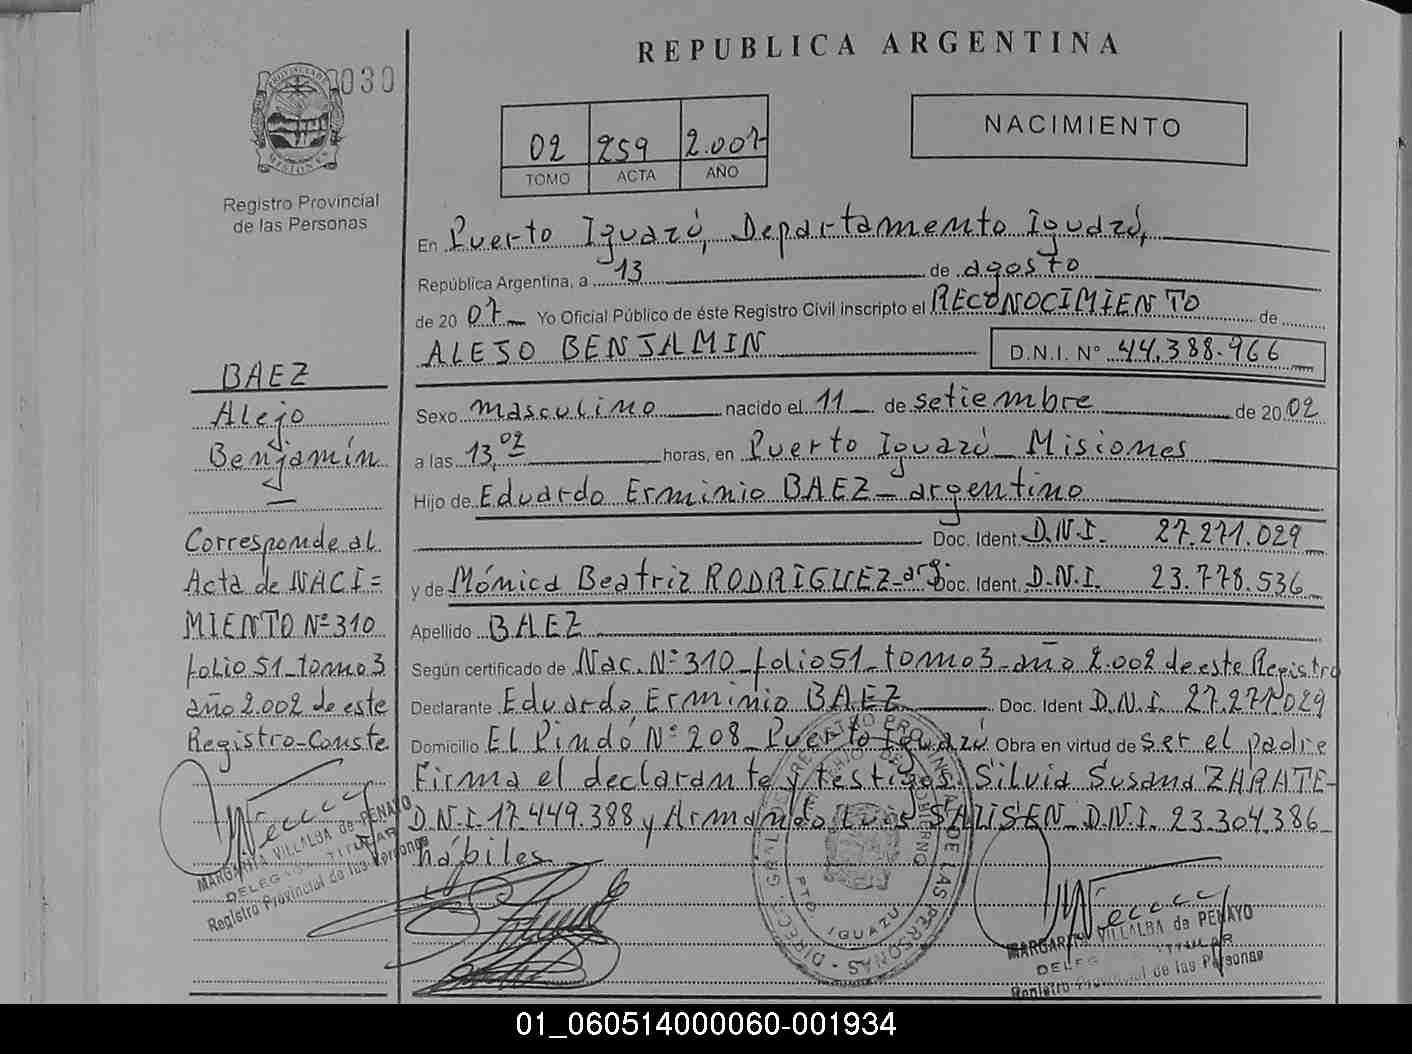 REPUBLICA ARGENTINA
030
PROVINCIA DE
MISIONES
Registro Provincial
de las Personas
02 259 2.007
TOMO ACTA AÑO
NACIMIENTO
En Puerto Iguazú, Departamento Iguazú,
República Argentina, a 13 de agosto
de 20 07 Yo Oficial Público de éste Registro Civil inscripto el RECONOCIMIENTO de
ALEJO BENJAMIN D.N.I. N° 44.388.966
Sexo masculino nacido el 11 de setiembre de 20 02
a las 13,02 horas, en Puerto Iguazú Misiones
Hijo de Eduardo Erminio BAEZ - argentino
Doc. Ident. D.N.I. 27.271.029
y de Mónica Beatriz RODRIGUEZ - arg. Doc. Ident. D.N.I. 23.778.536
Apellido BAEZ
Según certificado de Nac. N° 310 folio 51 tomo 3 - año 2.002 de este Registro
Declarante Eduardo Erminio BAEZ Doc. Ident D.N.I. 27.271.029
Domicilio El Pindó N° 208 Puerto Iguazú Obra en virtud de ser el padre
Firma el declarante y testigos, Silvia Susana ZARATE-
D.N.I. 17.449.388 y Armando Luis SALISEN D.N.I. 23.304.386
hábiles
BAEZ
Alejo
Benjamín
Corresponde al
Acta de NACI=
MIENTO N° 310
folio 51 tomo 3
año 2.002 de este
Registro - Conste
MARGARITA VILLALBA de PENAYO
DELEGADA TITULAR
Registro Provincial de las Personas
DIRECC. GRAL. DE REGISTRO PROVINCIAL DE LAS PERSONAS
PTO. IGUAZU
MARGARITA VILLALBA de PENAYO
TITULAR
Registro Provincial de las Personas
01_060514000060-001934